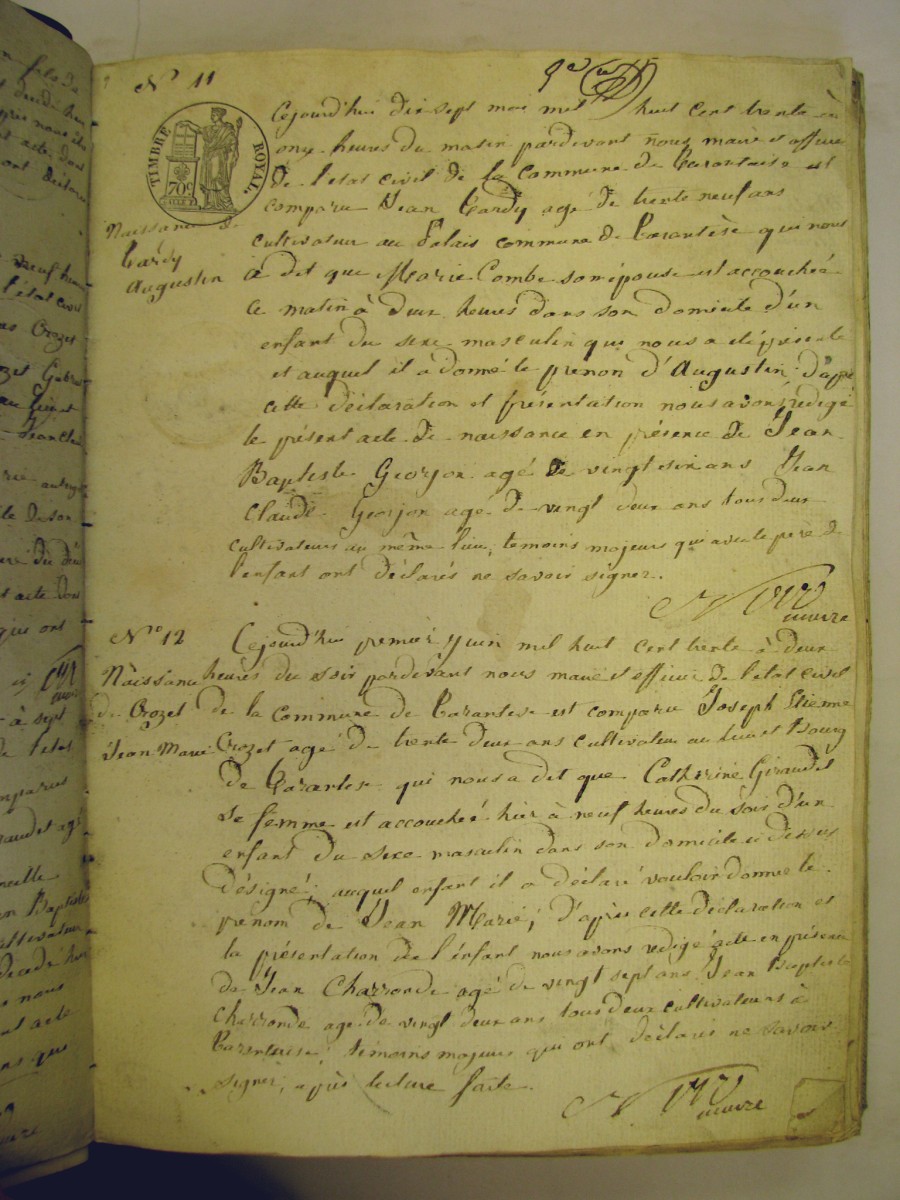 N° 11
TIMBRE ROYAL
70c
Naissance de
Tardy
Augustin
Cejourd'hui dix sept mai mil huit cent trente à
onze heures du matin pardevant nous maire et officier
de l'état civil de la Commune de Tarantaise est
comparu Jean Tardy agé de trente neuf ans
cultivateur au Palais commune de Tarantèse qui nous
a dit que Marie Combe son épouse est accouchée
ce matin à deux heures dans son domicile d'un
enfant du sexe masculin que nous a été présenté
et auquel il a donné le prenon d'Augustin. D'après
cette déclaration et présentation nous avons redigé
le présent acte de naissance en présence de Jean
Baptiste Georjon agé de vingt six ans Jean
Claude Georjon agé de vingt deux ans tous deux
cultivateurs au même lieu, temoins majeurs qui avec le père de
l'enfant ont déclarés ne savoir signer.
maire
N° 12
Naissance
de Crozet
Jean Marie
Cejourd'hui premier juin mil huit cent trente à deux
heures du soir pardevant nous maire et officier de l'état civil
de la commune de Tarantese est comparu Joseph Etienne
Crozet agé de trente deux ans cultivateur au lieu et Bourg
de Tarantese qui nous a dit que Catherine Giraudet
se femme est accouchée hier à neuf heures du soir d'un
enfant du sexe masculin dans son domicile ci dessus
désigné; auquel enfant il a déclaré vouloir donner le
prenom de Jean Marie; D'après cette déclaration et
la présentation de l'enfant nous avons redigé acte en présence
de Jean Charronde agé de vingt sept ans, Jean Baptiste
Charronde age de vingt deux ans tous deux cultivateurs à
Tarentaise; témoins majeurs qui ont déclaré ne savoir
signer, après lecture faite.
maire